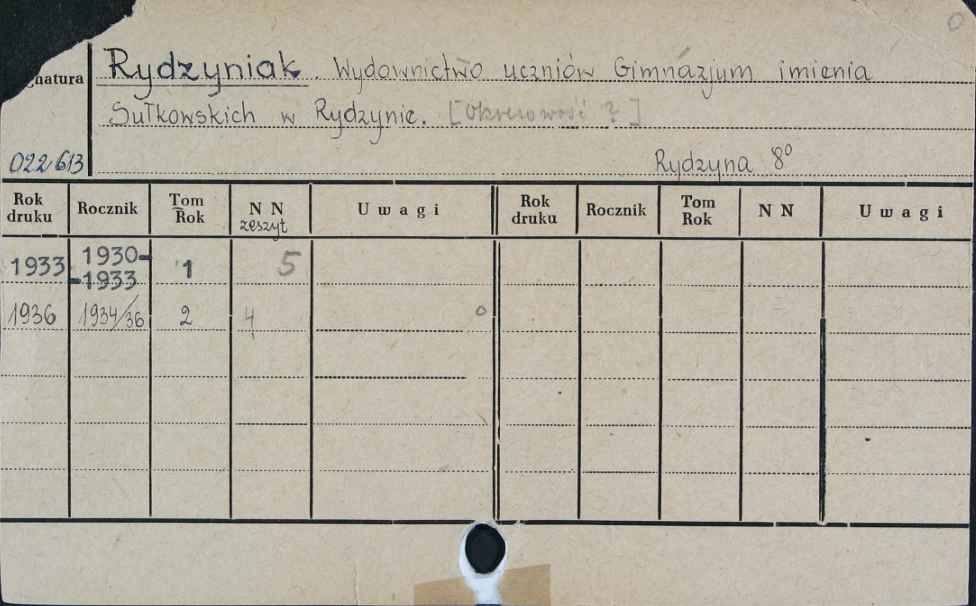 Rydzyniak. Wydownictwo uczniów Gimnázjum imienia
natura
Sułkowskich w Rydzynie. [Okresowość ?]
022613 Rydzyna 8°
Rok druku Rocznik Tom Rok N N zeszyt Uwagi Rok druku Rocznik Tom Rok N N Uwagi
1933 1930-1933 1 5
1936 1934/36 2 4